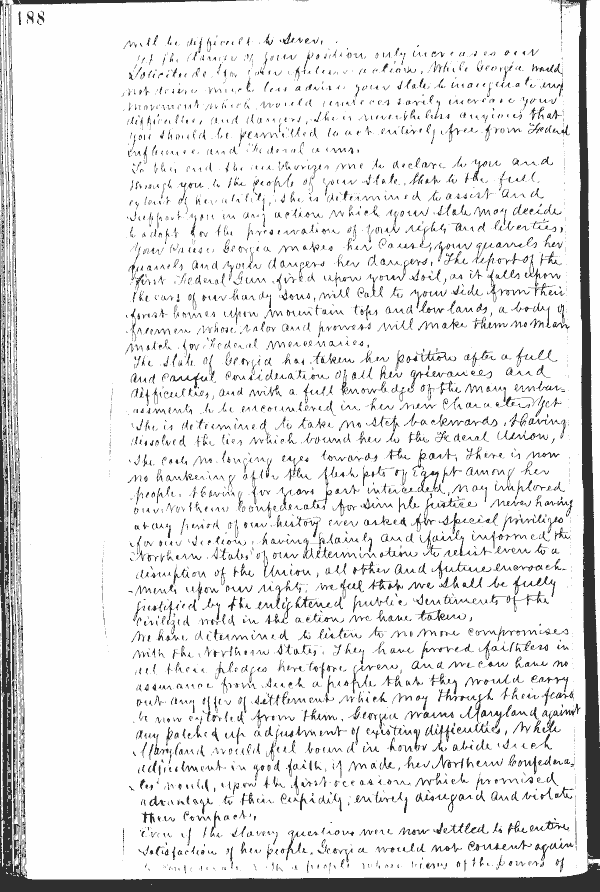 188
will be difficult to sever.
Yet the danger of your position only increases our
solicitude for your future action. While Georgia would
not desire much less advise your State to inaugurate any
movement which would unnecessarily increase your
difficulties and dangers, she is nevertheless anxious that
you should be permitted to act entirely free from Federal
influence and Federal arms.
To this end she authorizes me to declare to you and
through you to the people of your State, that to the full
extent of her ability, she is determined to assist and
support you in any action which your State may decide
to adopt for the preservation of your rights and liberties,
Your cause Georgia makes her cause, your quarrels her
quarrels and your dangers her dangers. The report of the
first Federal Gun fired upon your soil, as it falls upon
the ears of our hardy sons, will call to your side from their
forest homes upon mountain tops and low lands, a body of
freemen whose valor and prowess will make them no mean
match for Federal mercenaries.
The State of Georgia has taken her position after a full
and careful consideration of all her grievances and
difficulties, and with a full knowledge of the many embar-
assments to be encountered in her new character Yet
She is determined to take no step backwards. Having
dissolved the ties which bound her to the Federal Union,
She casts no longing eyes towards the past. There is now
no hankering after the flesh pots of Egypt among her
people. Having for years past interceded, nay implored
our Northern Confederates for simple justice never having
at any period of our history ever asked for special priviliges
for our section, having plainly and fairly informed the
Northern States of our determination to resist even to a
disruption of the Union, all other and future encroach-
-ments upon our rights, we feel that we shall be fully
justified by the enlightened public sentiments of the
civilized world in the action we have taken.
We have determined to listen to no more compromises
with the Northern States. They have proved faithless in
all their pledges heretofore given, and we can have no
assurance from such a people that they would carry
out any offer of settlement which may through their fears
be now extorted from them. Georgia warns Maryland against
any patched up adjustment of existing difficulties, While
Maryland would feel bound in honor to abide such
adjustment in good faith, if made, her Northern Confedera-
tes would, upon the first occasion which promised
advantage to their cupidity, entirely disregard and violate
their compact.
Even if the slavery questions were now settled to the entire
satisfaction of her people, Georgia would not consent again
to confederate with a people whose views of the powers of